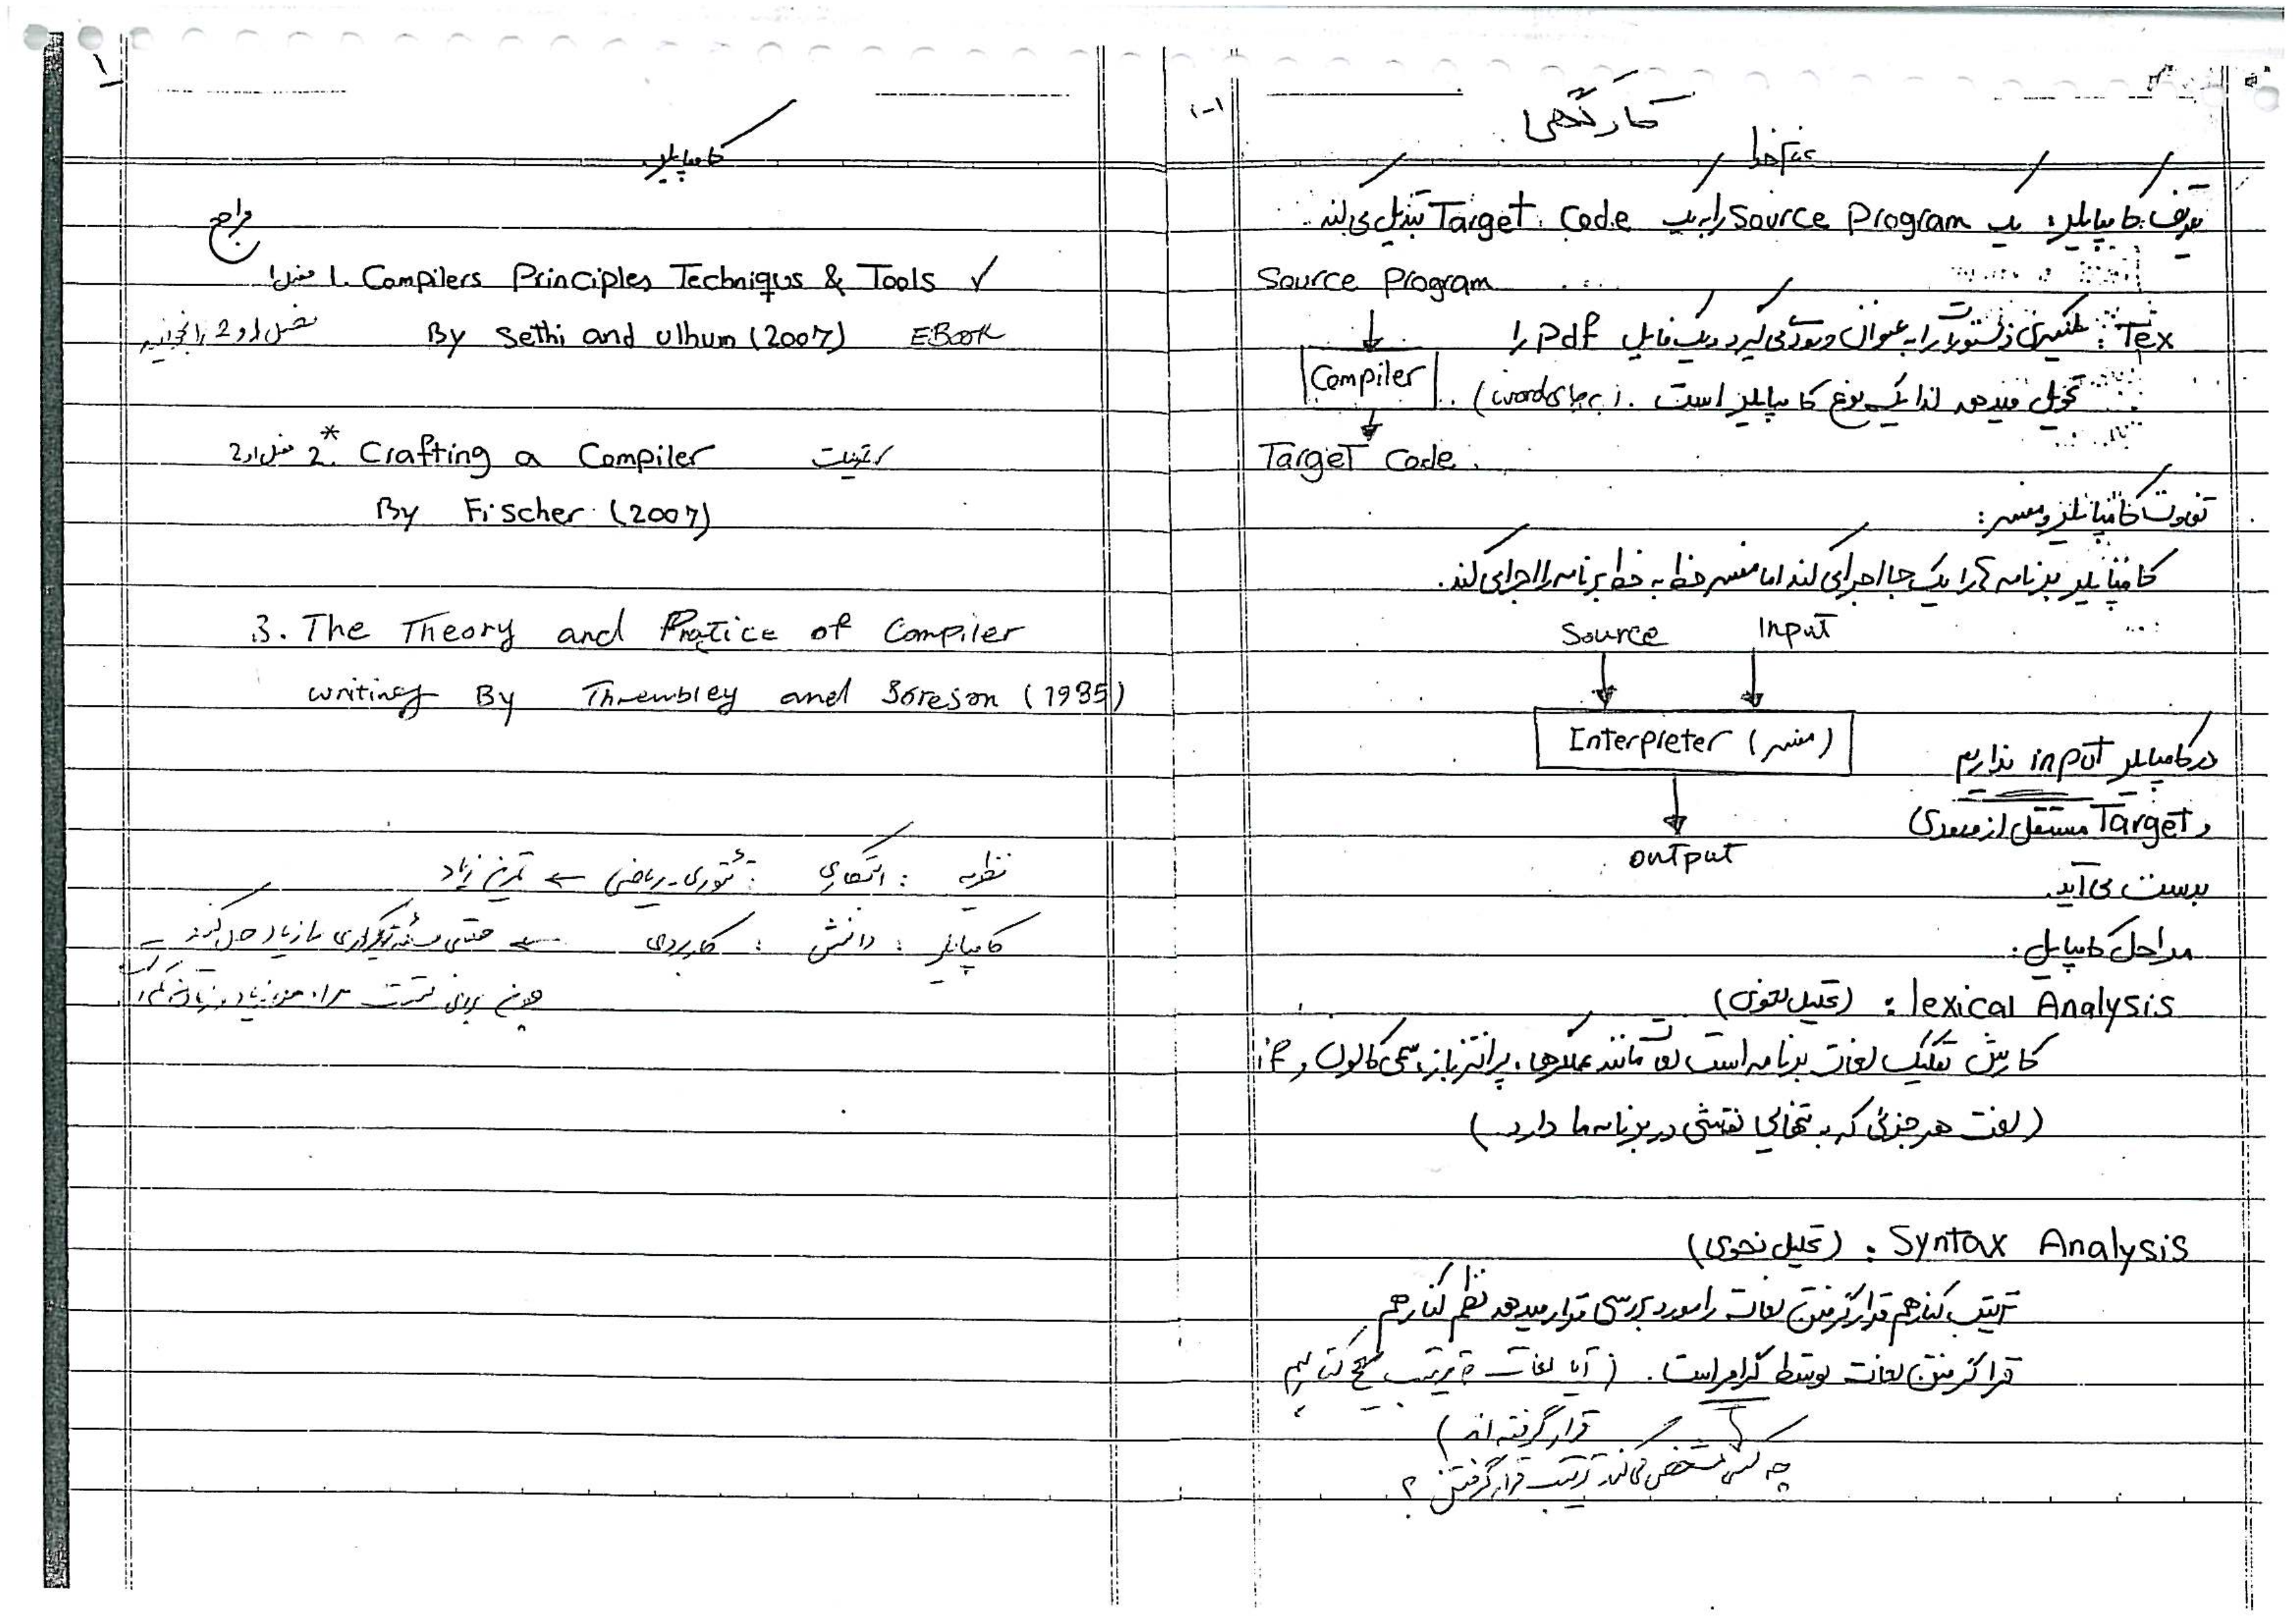 ۱
کامپایلر
مراجع
1. Compilers Principles Techniqus & Tools ✓ فصل 1
By Sethi and Ulhum (2007) EBook فصل 1 و 2 را بخوانید
2.* Crafting a Compiler فصل 1 و 2
By Fischer (2007)
3. The Theory and Pratice of Compiler
writing By Thrembley and Soreson (1985)
نظریه : انتزاعی : تئوری - ریاضی ← تمرین زیاد
کامپایلر : دانش : کاربردی ← حتی مسئله تکراری را زیاد حل کنید
۱-۱
کارگهی
بنام خدا
تعریف کامپایلر: یک Source Program را به یک Target Code تبدیل می کند.
Source Program
Compiler
Target Code
Tex : را به عنوان ورودی می گیرد و یک فایل Pdf را
تحویل میدهد لذا یک نوع کامپایلر است.
تفاوت کامپایلر و مفسر:
کامپایلر برنامه را یک جا اجرا می کند اما مفسر خط به خط برنامه را اجرا می کند.
Source Input
Interpreter (مفسر)
output
در کامپایلر input نداریم
و Target مستقل از ورودی
بدست می آید.
مراحل کامپایل:
lexical Analysis : (تحلیل لغوی)
کارش تفکیک لغات برنامه است لغت مانند عملگرها، پرانتز باز، سمی کالون و if
(لغت هر جزئی که به تنهائی نقشی در برنامه ما دارد.)
Syntax Analysis : (تحلیل نحوی)
ترتیب کنار هم قرار گرفتن لغات را مورد بررسی قرار میدهد نظم کنار هم
قرا گرفتن لغات توسط گرامر است. (آیا لغات به ترتیب صحیح کنار هم
قرار گرفته اند)
چه کسی مشخص می کند ترتیب قرار گرفتن؟